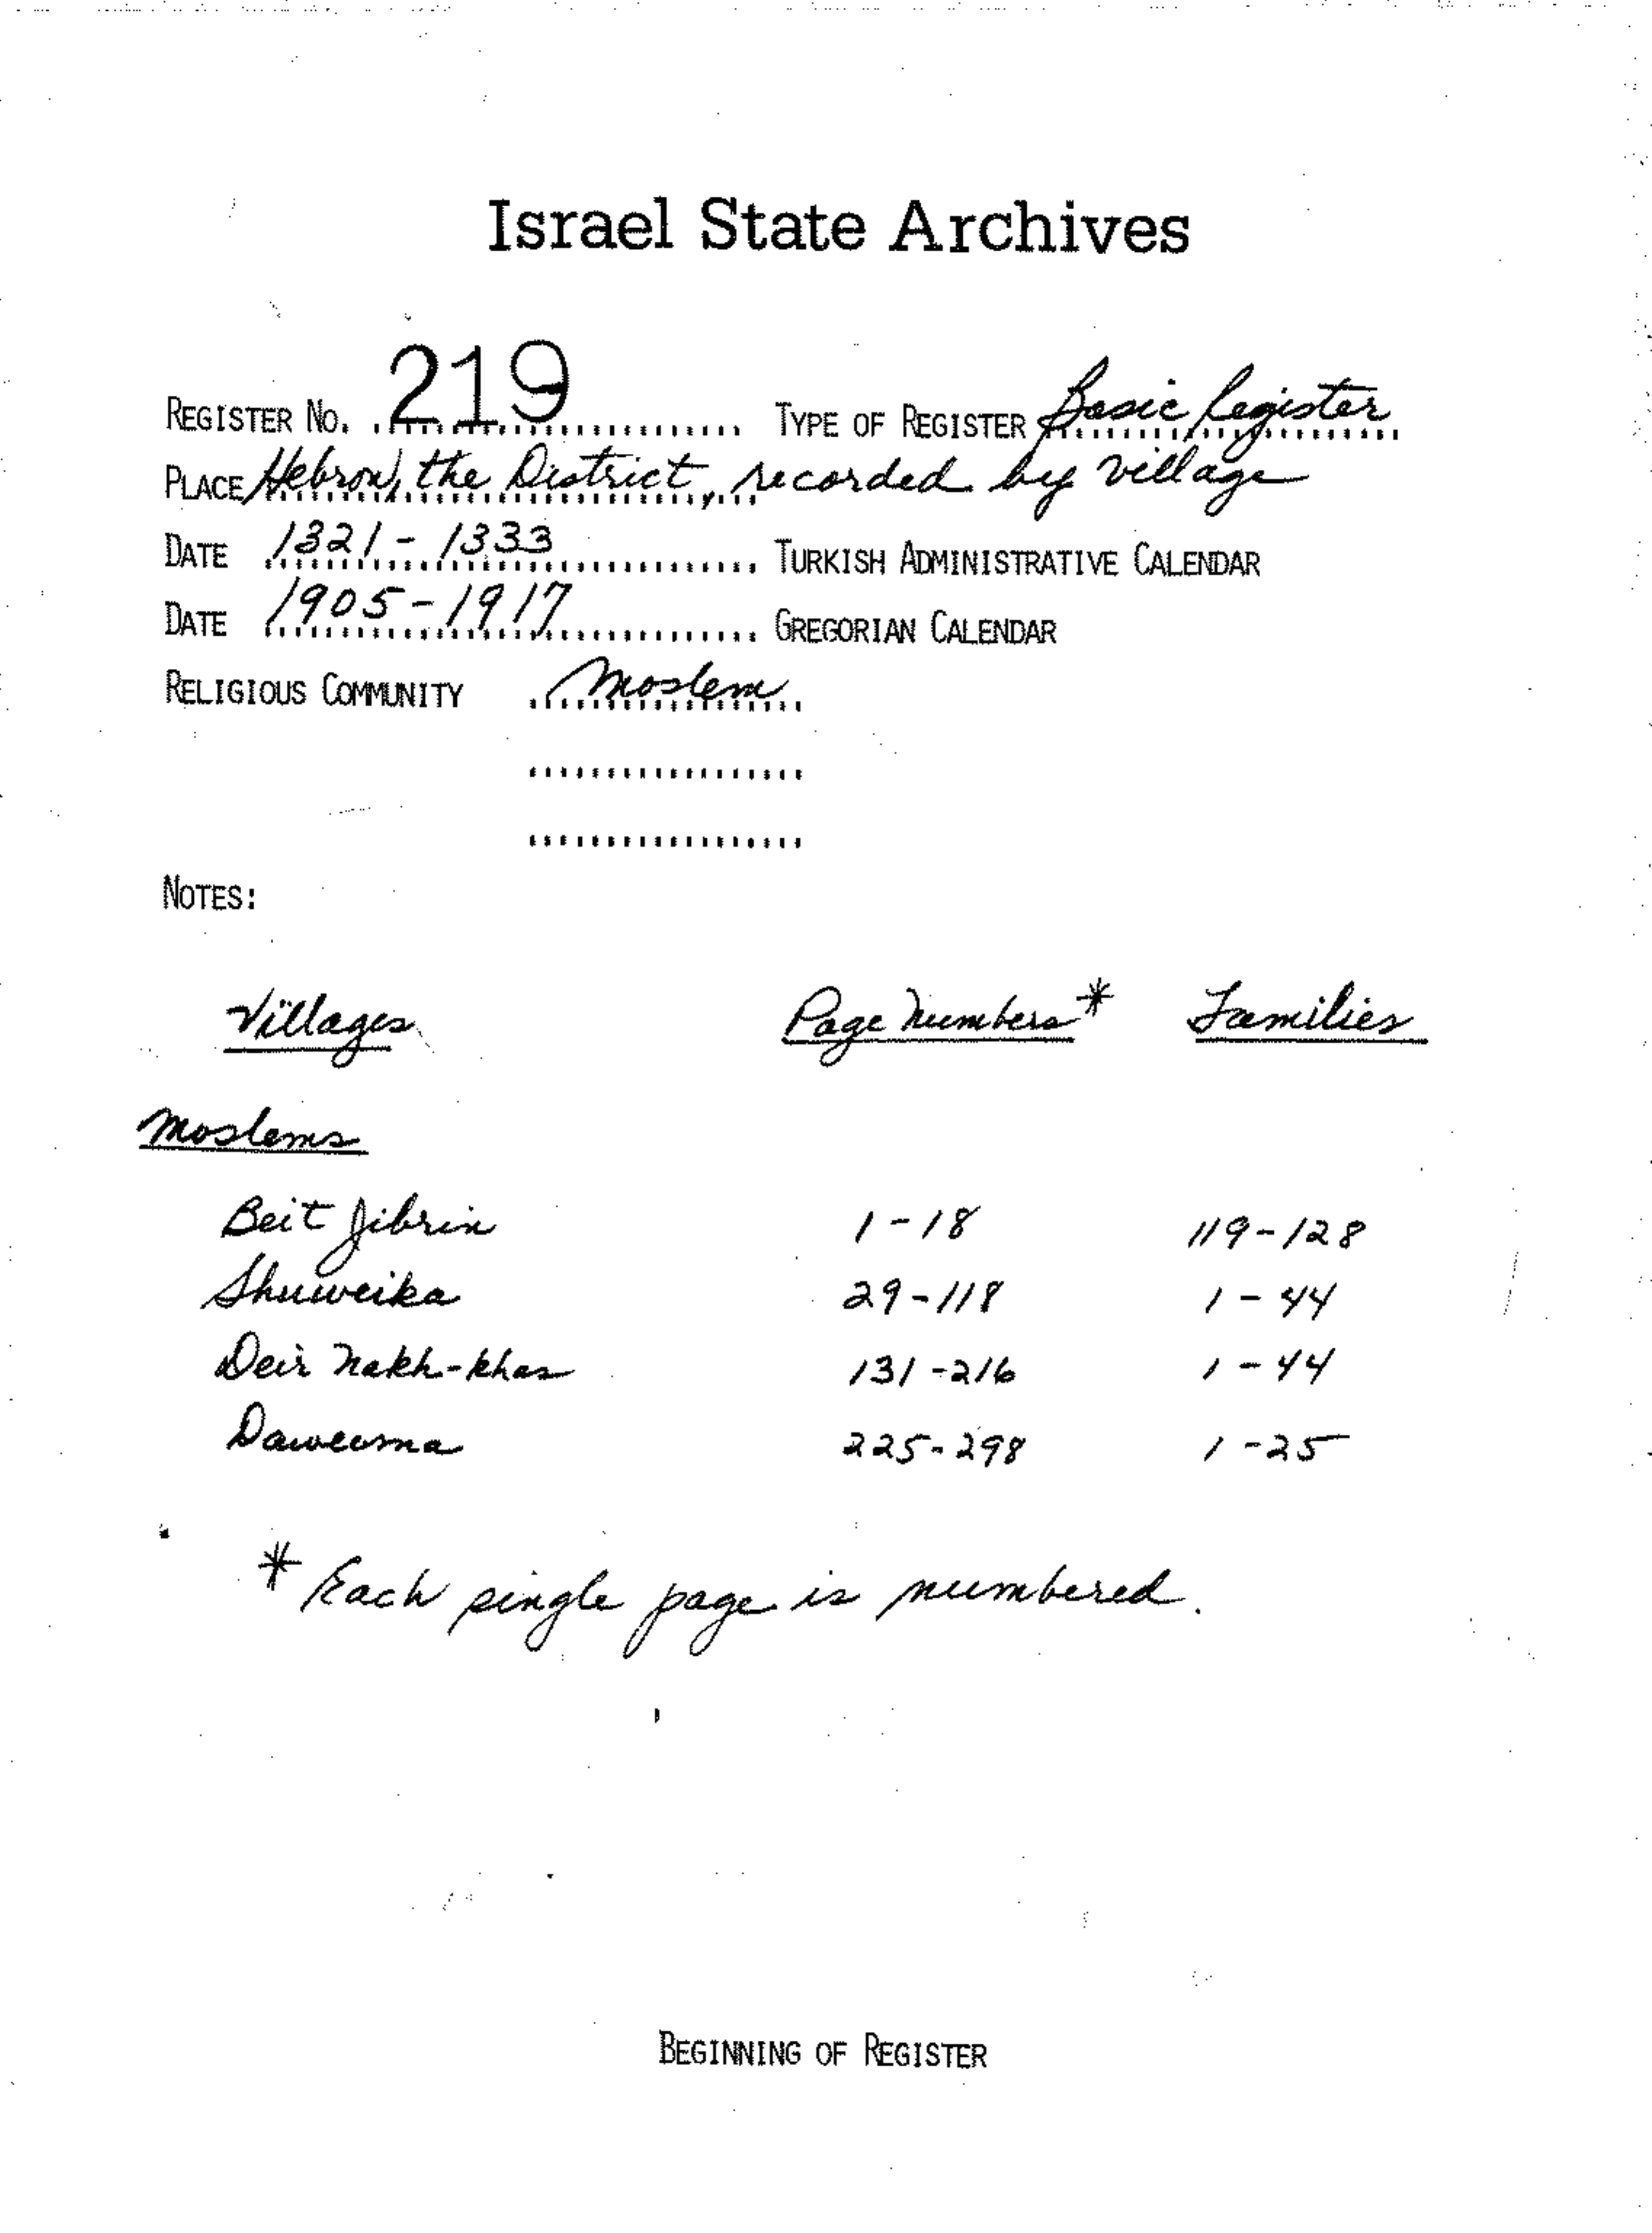 Israel State Archives
REGISTER NO. 219 TYPE OF REGISTER Basic Register
PLACE Hebron, the District, recorded by village
DATE 1321 - 1333 TURKISH ADMINISTRATIVE CALENDAR
DATE 1905 - 1917 GREGORIAN CALENDAR
RELIGIOUS COMMUNITY Moslem
NOTES:
Villages Page Numbers* Families
Moslems
Beit Jibrin 1 - 18 119 - 128
Shuweika 29 - 118 1 - 44
Deir Nakh-khas 131 - 216 1 - 44
Daweoma 225 - 298 1 - 25
* Each single page is numbered.
BEGINNING OF REGISTER